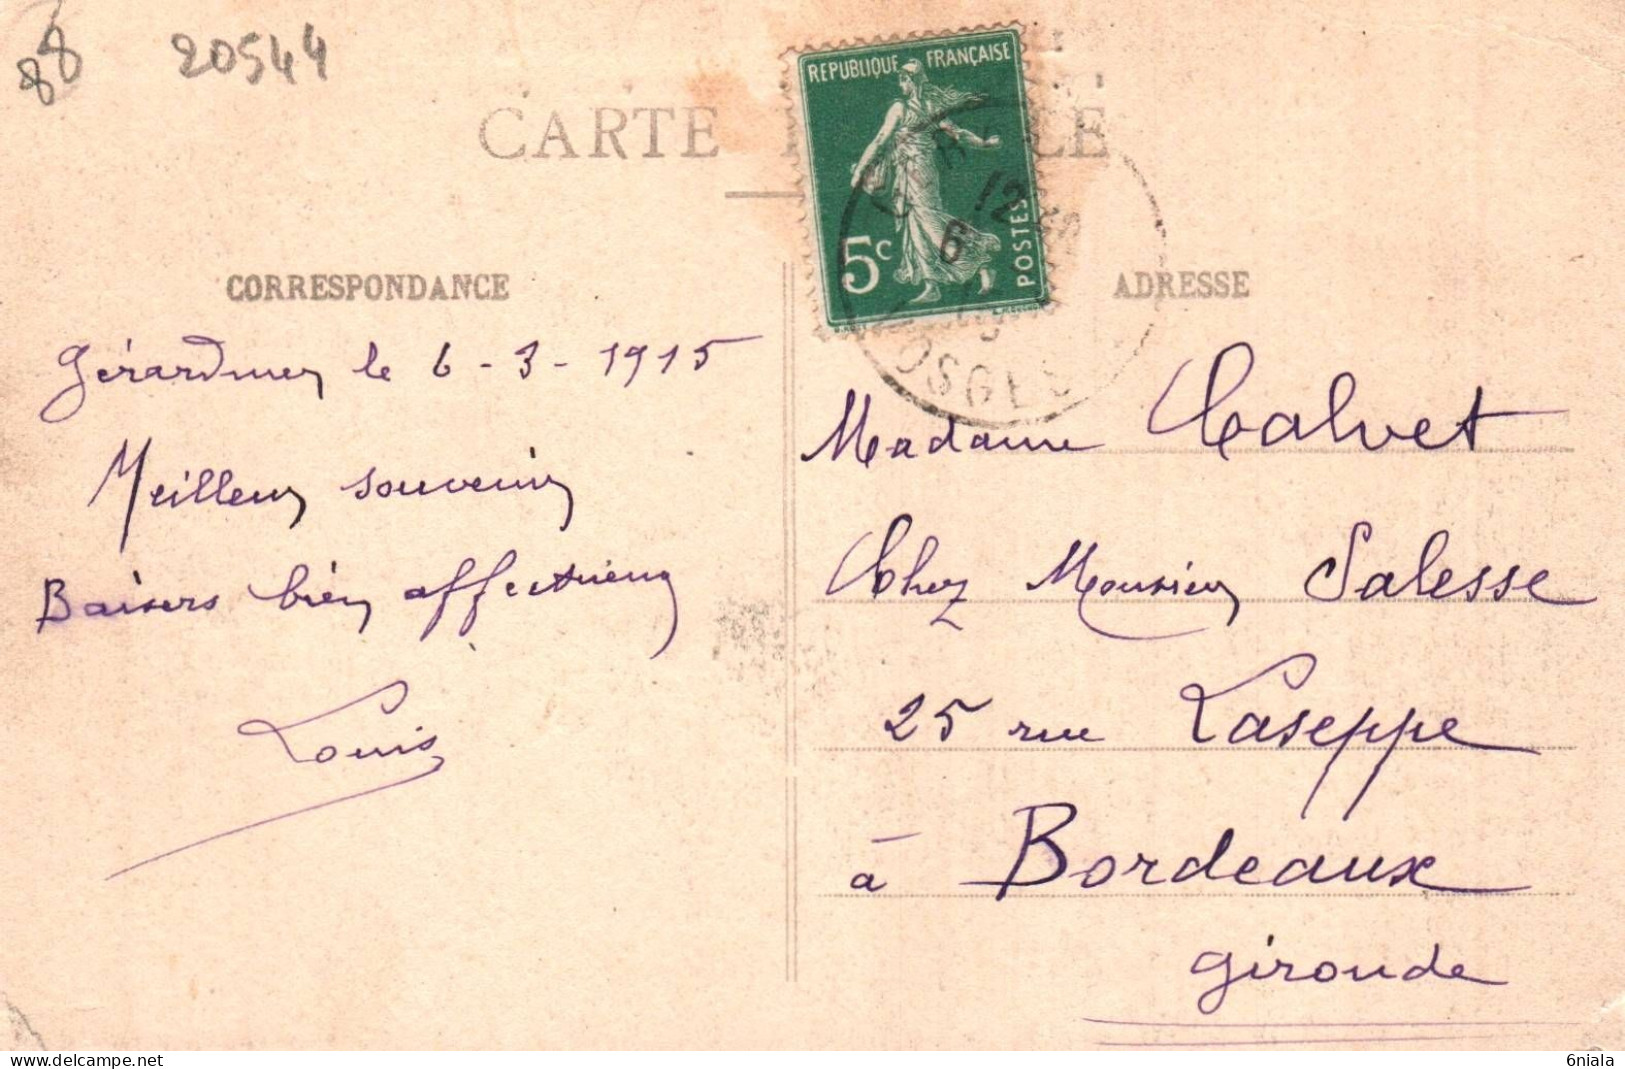 88
20544
CARTE
REPUBLIQUE FRANÇAISE
5c
POSTES
12
6
VOSGES
CORRESPONDANCE
ADRESSE
Gérardmer le 6-3-1915
Meilleurs souvenirs
Baisers bien affectueux
Louis
Madame Calvet
Chez Monsieur Salesse
25 rue Laseppe
à Bordeaux
Gironde
www.delcampe.net
6niala